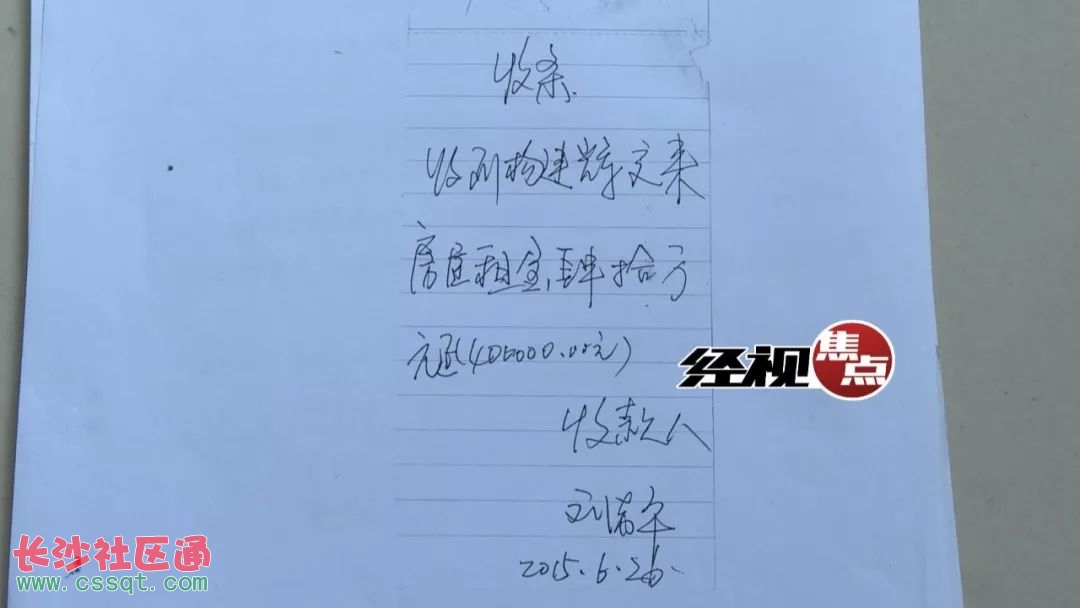 收条
收到杨建辉交来
房屋租金,肆拾万
元正(400000.00元)
收款人
2015.6.
经视
焦点
长沙社区通
www.cssqt.com